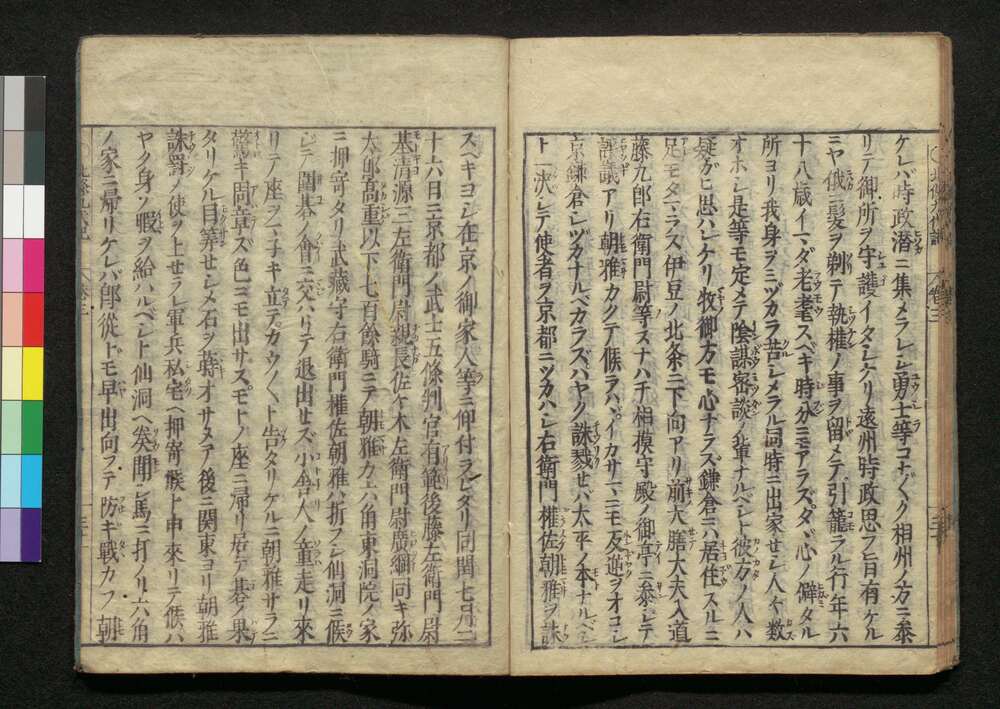 ケレバ時政潜ニ集メラレシ勇士等コト〴〵ク相州ノ方ニ参
リテ御所ヲ守護イタシケリ遠州時政思フ旨有ケル
ニヤ俄ニ髪ヲ剃テ執権ノ事ヲ留メテ引籠ラル行年六
十八歳イマダ老耄スベキ時分ニモアラズタヾ心ノ僻タル
所ヨリ我身ヲミヅカラ苦シメラル同時ニ出家セシ人々数
オホシ是等モ定メテ陰謀密談ノ輩ナルベシト彼方ノ人ハ
疑ガヒ思ハレケリ牧御方モ心ナラズ鎌倉ニハ居住スルニ
足モタマラス伊豆ノ北条ニ下向アリ前大膳大夫入道
藤九郎右衛門尉等スナハチ相模守殿ノ御亭ニ参シテ
評議アリ朝雅カクテ候ラハヾイカサマニモ反逆ヲオコシ
京鎌倉シヅカナルベカラズハヤク誅戮セバ太平ノ本ナルベシ
ト一决シテ使者ヲ京都ニツカハシ右衛門權佐朝雅ヲ誅
スベキヨシ在京ノ御家人等ニ仰付ラレタリ同閏七月二
十六日ニ京都ノ武士五條判官有範後藤左衛門尉
基清源三左衛門尉親長佐々木左衛門尉廣綱同キ弥
太郎髙重以下七百餘騎ニテ朝雅カ六角東洞院ノ家
ニ押寄タリ武蔵守右衛門權佐朝雅ハ折フシ仙洞ニ候
シテ圍碁ノ會ニ交ハリテ退出セズ小舎人ノ童走リ來
リテ座ヲマ子キ立テカウ〳〵ト告タリケルニ朝雅サラニ
驚ツキ周章ズ色ニモ出サスモトノ座ニ帰リ居テ碁ノ果
タリケル目筭セシメ石ヲ蒔オサメテ後ニ関東ヨリ朝雅
誅罰ノ使ヲ上セラレ軍兵私宅ヘ押寄候ト申來リテ候ハ
ヤク身ノ暇ヲ給ハルベシト仙洞ヘ奏聞シ馬ニ打ノリ六角
ノ家ニ帰リケレバ郎從ドモ早出向フテ防キ戰カフ朝雅